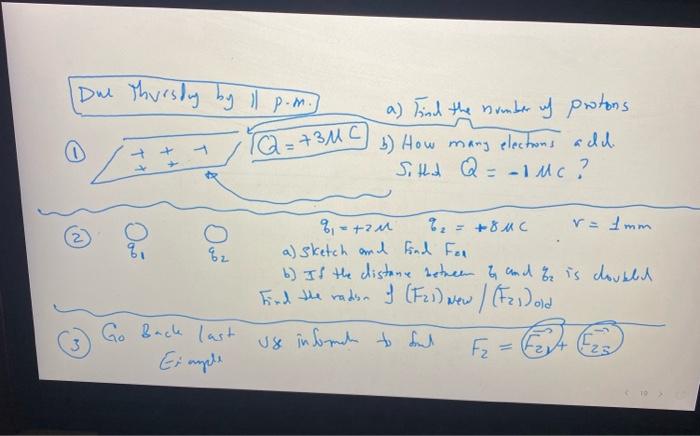 Due Thursday by 11 p.m.
a) Find the number of protons
① + + + Q = +3 μC b) How many electrons add
+ +
S.th.d Q = -1 μC ?
② q₁ q₂ q₁ = +2 μ q₂ = +8 μC r = 1mm
a) Sketch and Find F₂₁
b) If the distance between q₁ and q₂ is doubled
Find the of (F₂₁) New / (F₂₁) old
③ Go Back last use to find F₂ = F₂₁ + F₂₃
19